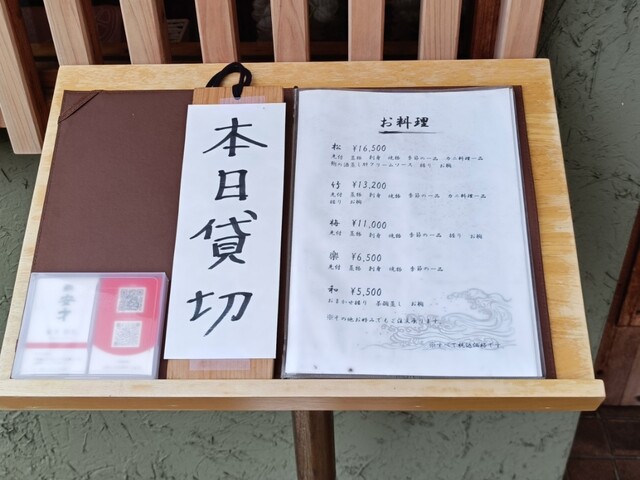 本日貸切
お料理
松 ¥16,500
先付 蒸物 刺身 焼物 季節の一品 カニ料理一品
竹 ¥13,200
先付 蒸物 刺身 焼物 季節の一品 カニ料理一品
握り お椀
梅 ¥11,000
先付 蒸物 刺身 焼物 季節の一品 握り お椀
楽 ¥6,500
先付 蒸物 刺身 焼物 季節の一品
和 ¥5,500
おまかせ握り 茶碗蒸し お椀
※その他お好みでもご注文承ります。
※すべて税込価格です